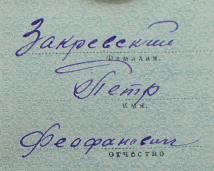 Закревский
Фамилия
Петр
имя
Феофанович
отчество